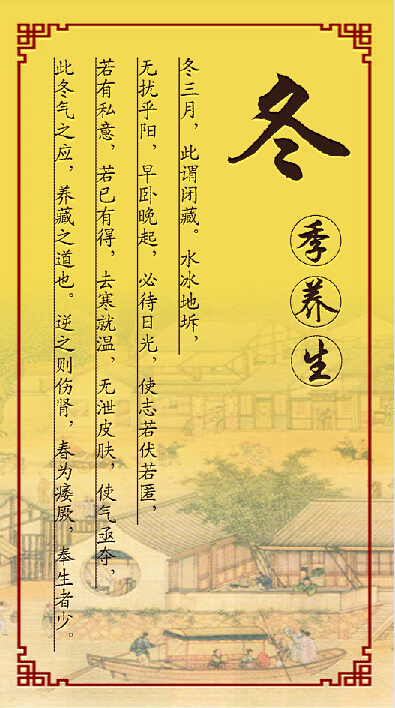 冬
季养生
冬三月，此谓闭藏。水冰地坼，
无扰乎阳，早卧晚起，必待日光，使志若伏若匿，
若有私意，若已有得，去寒就温，无泄皮肤，使气亟夺，
此冬气之应，养藏之道也。逆之则伤肾，春为痿厥，奉生者少。